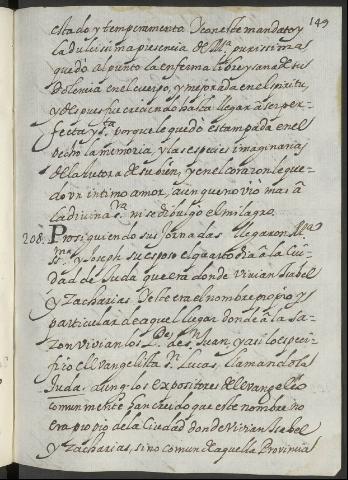 149
estado y temperamento. Y con este mandato y
la dulcissima presencia de Mª. purissima
quedò al punto la enferma libre y sana de su
dolencia en el cuerpo, y mejorada en el spiritu,
y despues fue creciendo hasta llegar à ser per-
fecta y Sta. porque le quedò estampada en el
pecho la memoria, y las especies imaginarias
de la autora de su bien, y en el corazon le que-
dò un intimo amor, aunque no vio mas à
la divina Sra. ni se dibulgò el milagro.
208. Prosiguiendo sus Jornadas llegaron Mª
Sma. y Joseph su esposo el quarto dia à la Ciu-
dad de Juda que era donde vivian Isabel
y Zacharias. Y este era el nombre propio y
particular de aquel lugar donde à la sa-
zon vivian los Pes. de Sn. Juan, y asi lo especi-
ficò el Evangelista Sn. Lucas, llamandola
Juda. aunq. los expositores del Evangelio
comunmente han creido que este nombre no
era propio de la Ciudad donde vivian Isabel
y Zacharias, sino comun de aquella Provincia